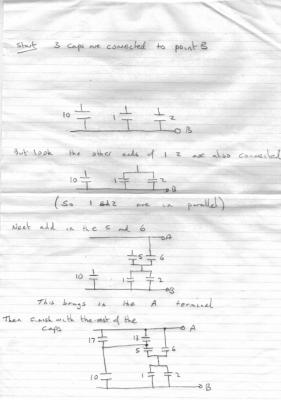 Start 3 caps are connected to point B
10 1 2 B
But look the other ends of 1 2 are also connected
10 1 2 B
(So 1 and 2 are in parallel)
Next add in the 5 and 6
A
5 6
10 1 2 B
This brings in the A terminal
Then finish with the rest of the
caps
A
17 13
5 6
10 1 2
B